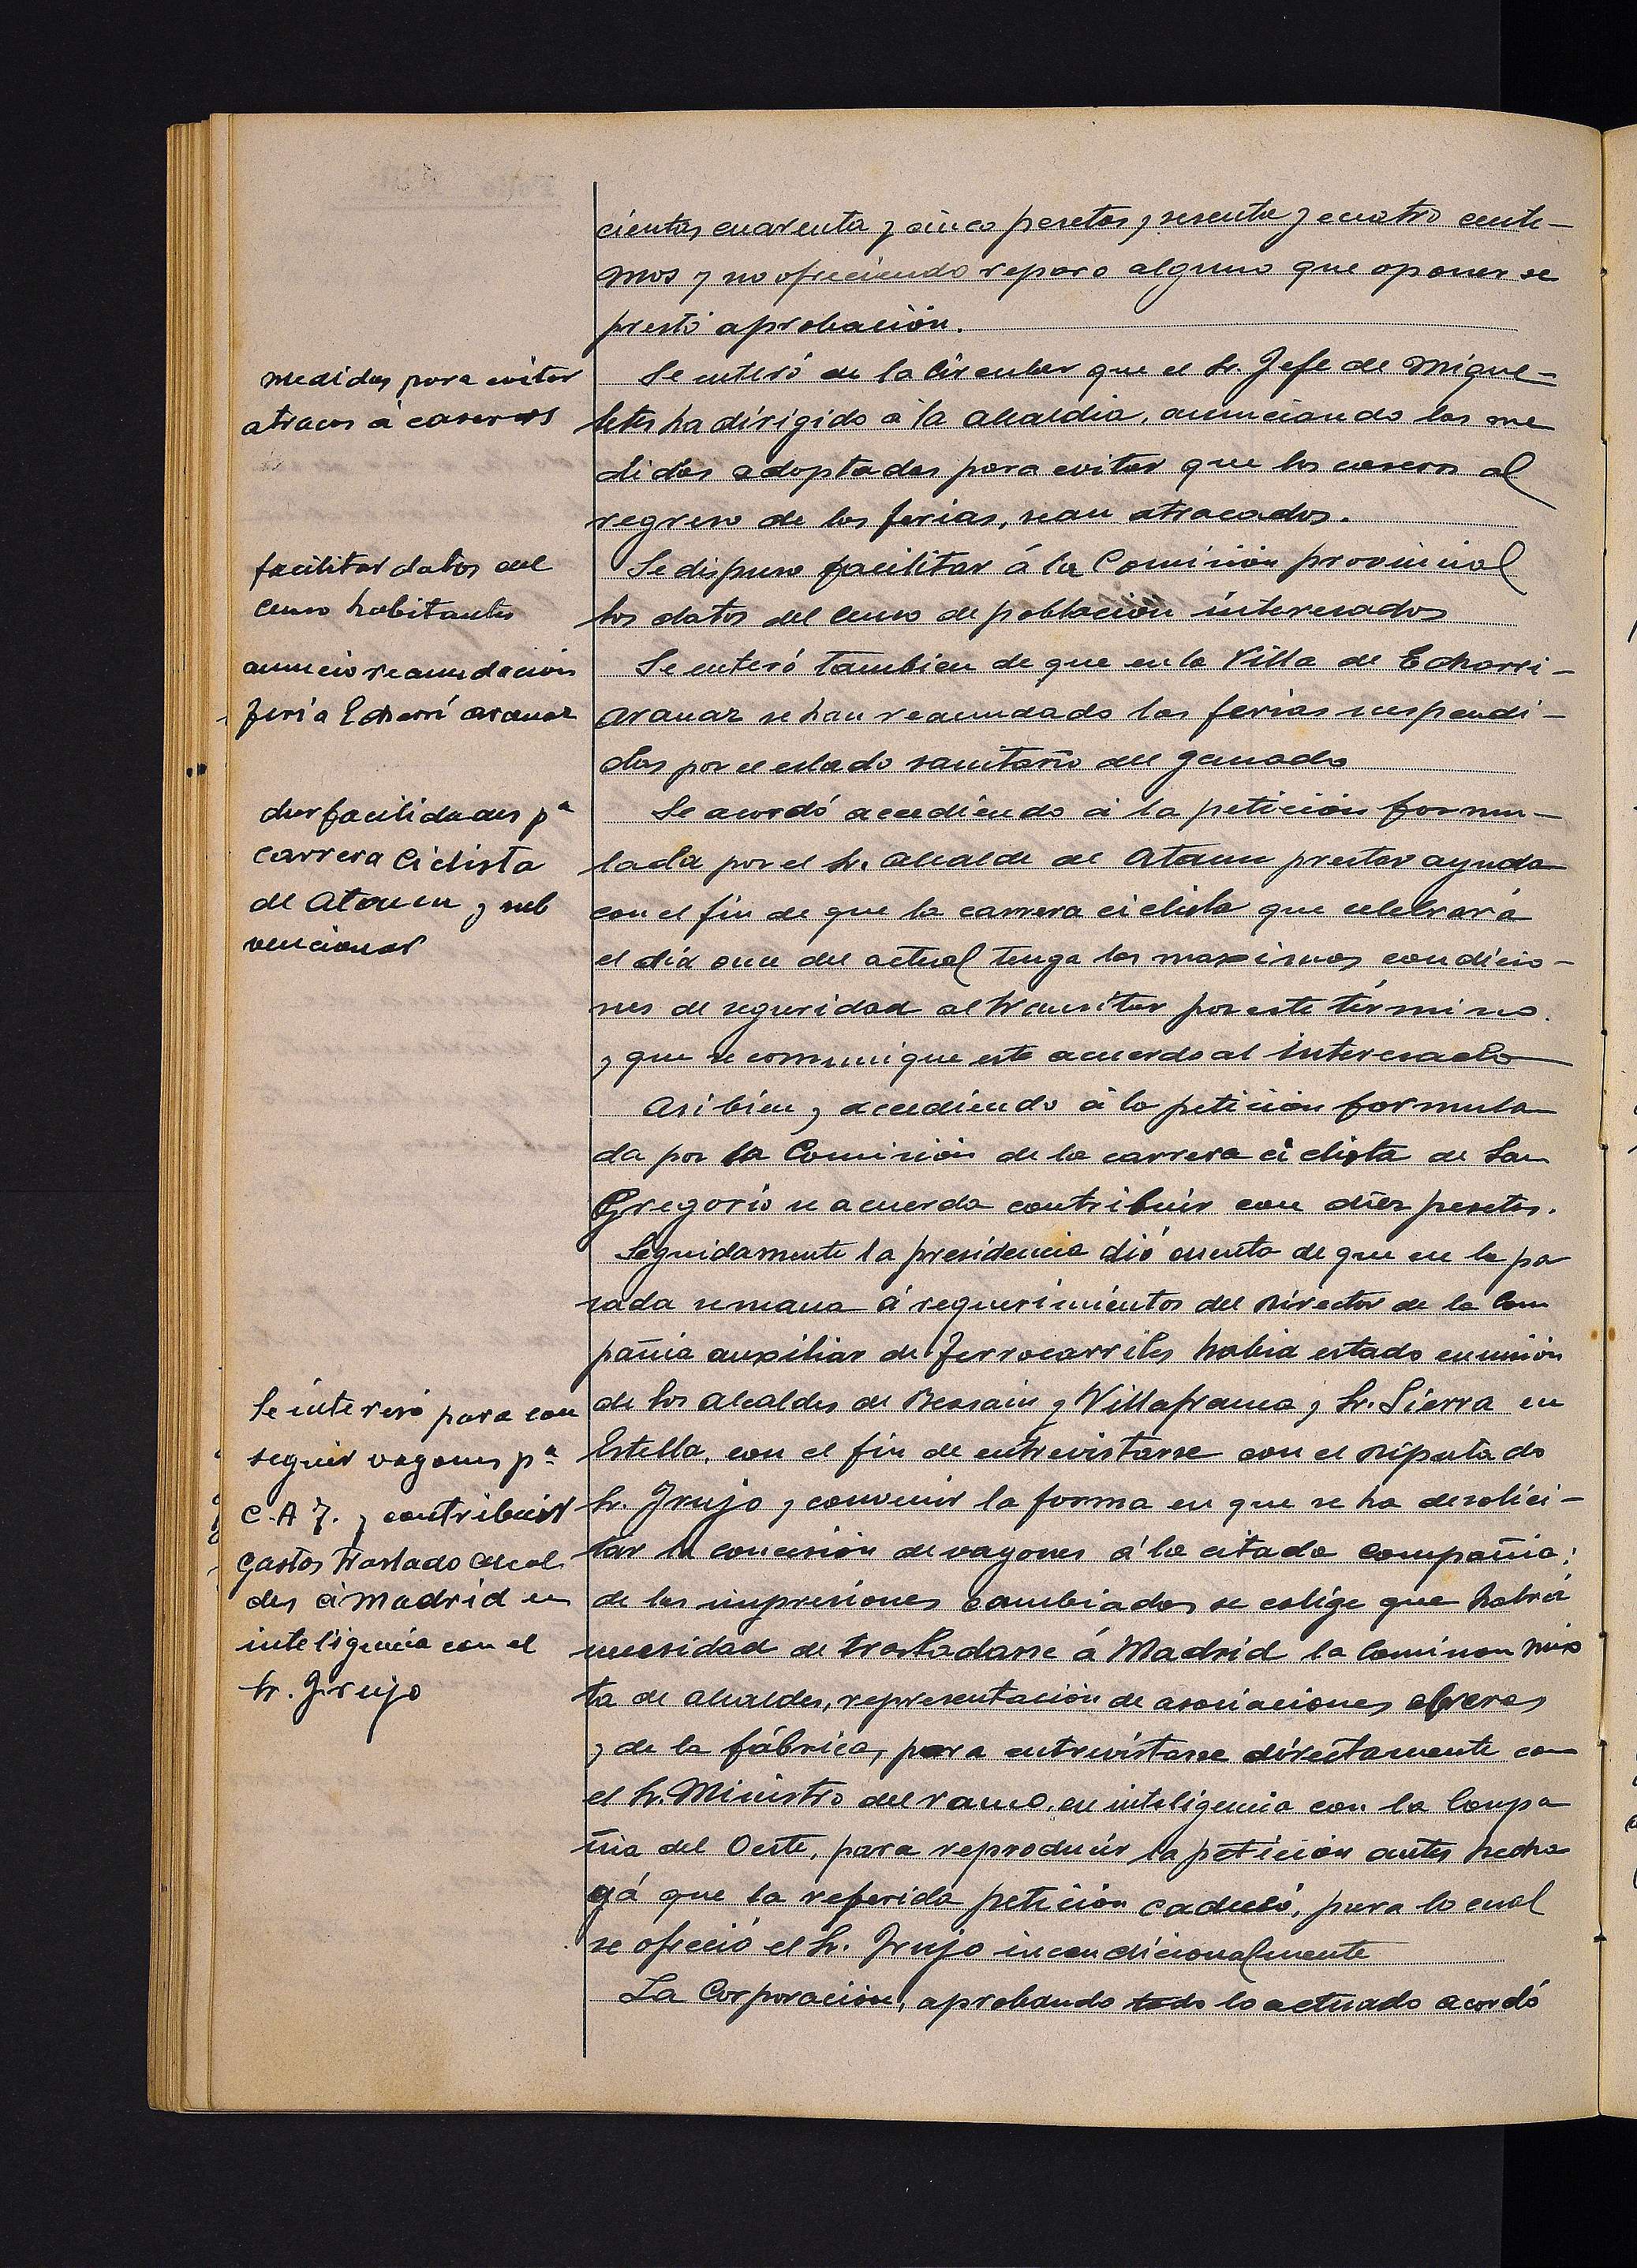 cientas cuarenta y cinco pesetas y sesenta y cuatro centi-
mos y no ofreciendo reparo alguno que oponer se
prestó aprobación.
medidas para evitar
atracos á caseros
Se enteró de la Circular que el Sr. Jefe de Migue-
letes ha dirigido á la alcaldia, anunciando las me
didas adoptadas para evitar que los caseros al
regreso de las ferias, sean atracados.
facilitar datos del
censo habitantes
Se dispuso facilitar á la Comisión provincial
los datos del censo de población interesados
anuncio reanudación
feria Echarri aranaz
Se enteró tambien de que en la Villa de Echarri-
aranaz se han reanudado las ferias suspendi-
das por el estado sanitario del ganado
dar facilidades pª
carrera Ciclista
de Ataun y sub
vencionar
Se acordó accediendo á la petición formu-
lada por el Sr. alcalde de Ataun prestar ayuda
con el fin de que la carrera ciclista que celebrará
el día once del actual tenga las maximas condicio-
nes de seguridad al transitar por este término.
y que se comunique este acuerdo al interesado
Asi bien y accediendo á la petición formula
da por la Comisión de la carrera ciclista de San
Gregorio se acuerda contribuir con diez pesetas.
Seguidamente la presidencia dió cuenta de que en la pa
sada semana á requerimientos del Director de la Com
pañia auxiliar de Ferrocarriles habia estado en unión
de los alcaldes de Beasain y Villafranca y Sr. Sierra en
Estella, con el fin de entrevistarse con el Diputado
Sr. Irujo y convenir la forma en que se ha de solici-
tar la concesión de vagones á la citada compañia;
de las impresiones cambiadas se colige que habrá
necesidad de trasladarse á Madrid la Comision mix
ta de alcaldes, representación de asociaciones obreras
y de la fábrica, para entrevistarse directamente con
el Sr. Ministro del ramo, en inteligencia con la Compa
ñia del Oeste, para reproducir la petición antes hecha
yá que la referida petición caducó, para lo cual
se ofreció el Sr. Irujo incondicionalmente
Se interesó para con
seguir vagones pª
C.A.F. y contribuir
gastos traslado alcal
des á Madrid en
inteligencia con el
Sr. Irujo
La Corporación, aprobando todo lo actuado acordó